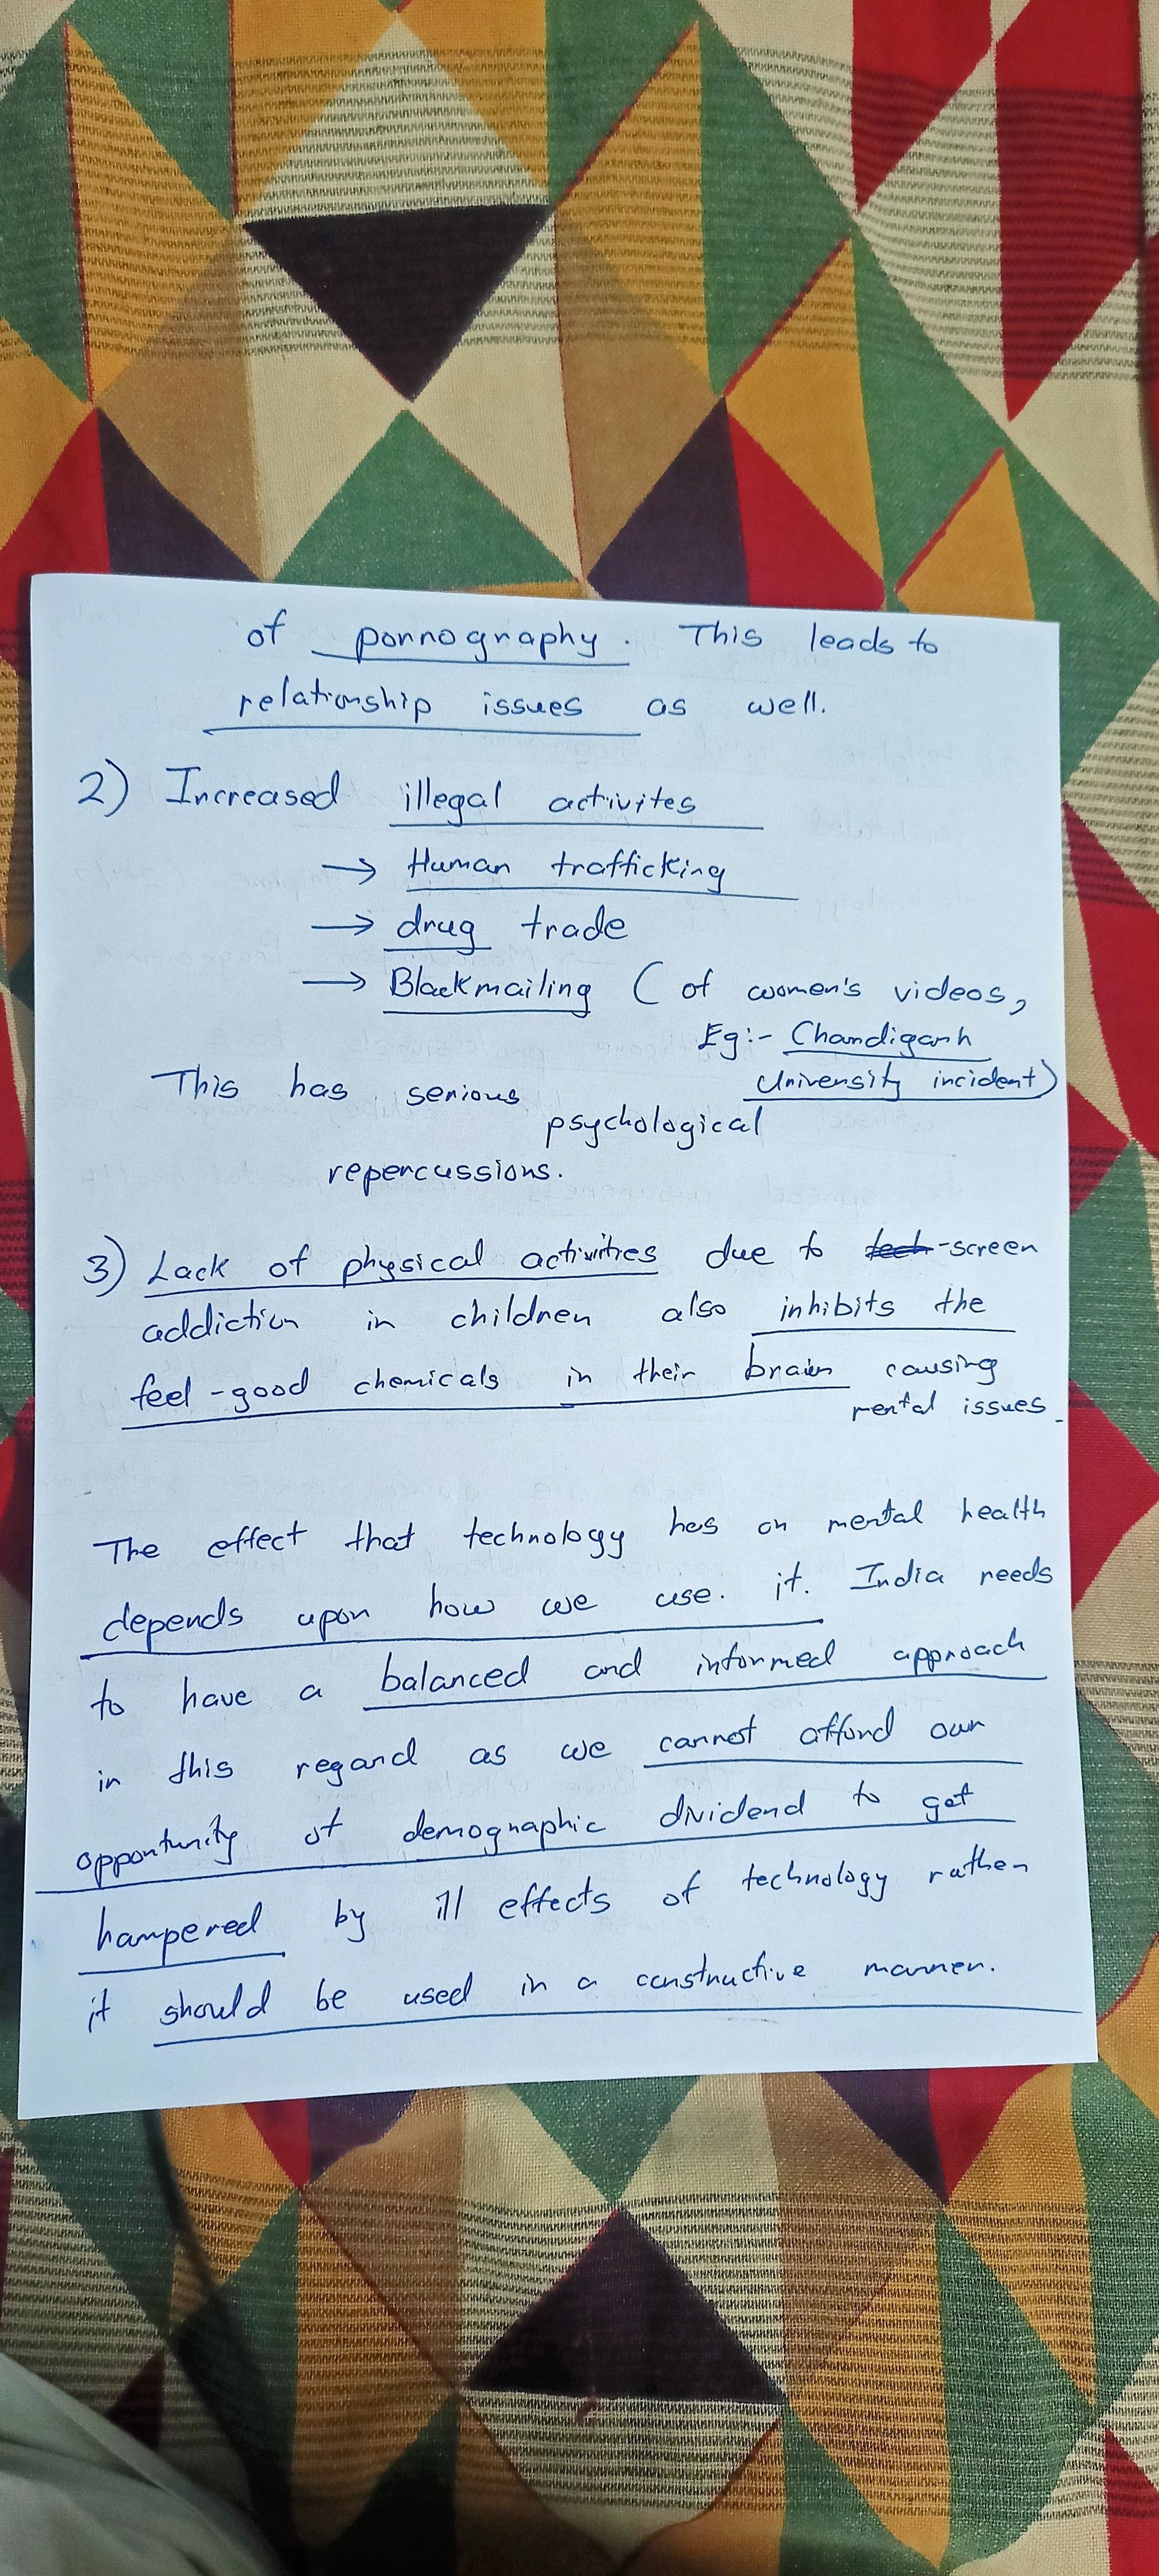 of pornography. This leads to
relationship issues as well.
2) Increased illegal activites
→ Human trafficking
→ drug trade
→ Blackmailing (of women's videos,
Eg:- Chandigarh
University incident)
This has serious
psychological
repercussions.
3) Lack of physical activities due to tech-screen
addiction in children also inhibits the
feel-good chemicals in their brain causing
mental issues.
The effect that technology has on mental health
depends upon how we use. it. India needs
to have a balanced and informed approach
in this regard as we cannot afford our
opportunity of demographic dividend to get
hampered by ill effects of technology rather
it should be used in a constructive manner.